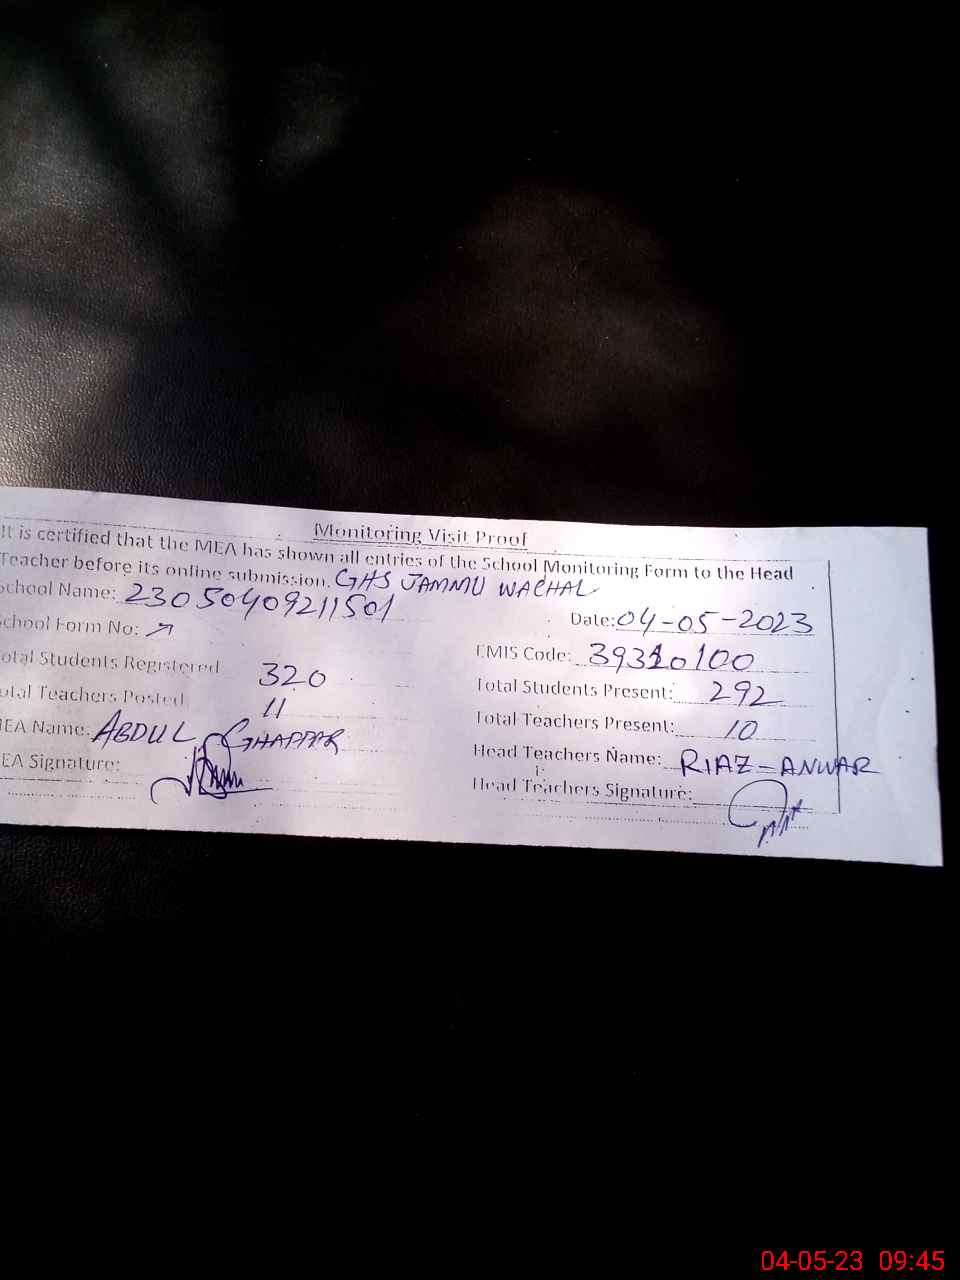 Monitoring Visit Proof
It is certified that the MEA has shown all entries of the School Monitoring Form to the Head
Teacher before its online submission. GHS JAMMU WACHAL
School Name: 23050409211501
Date: 04-05-2023
School Form No:
EMIS Code: 39310100
Total Students Registered 320
Total Students Present: 292
Total Teachers Posted 11
Total Teachers Present: 10
MEA Name: ABDUL GHAFFAR
Head Teachers Name: RIAZ-ANWAR
MEA Signature:
Head Teachers Signature:
04-05-23 09:45